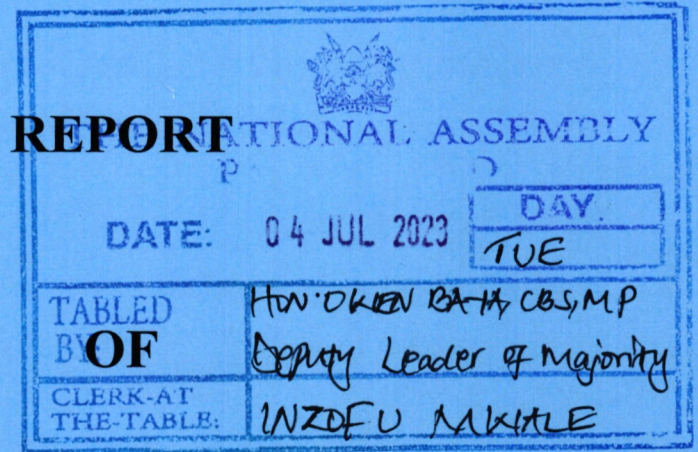 REPORT
THE NATIONAL ASSEMBLY
P D
DATE: 04 JUL 2023
DAY.
TUE
TABLED
BY
OF
HON. BAYA, CBS, MP
Deputy Leader of Majority
CLERK-AT
THE-TABLE:
INZOFU MWALE